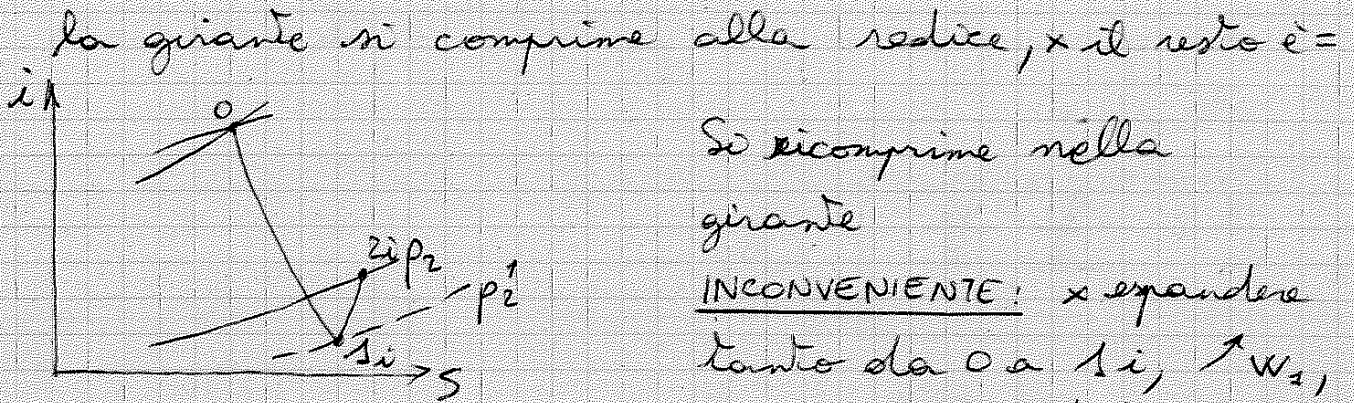 la girante si comprime alla radice, x il resto è =
i
0
Si ricomprime nella
girante
2i p₂
p₂'
INCONVENIENTE: x espandere
1i
tanto da 0 a 1i, ↗ w₁,
S